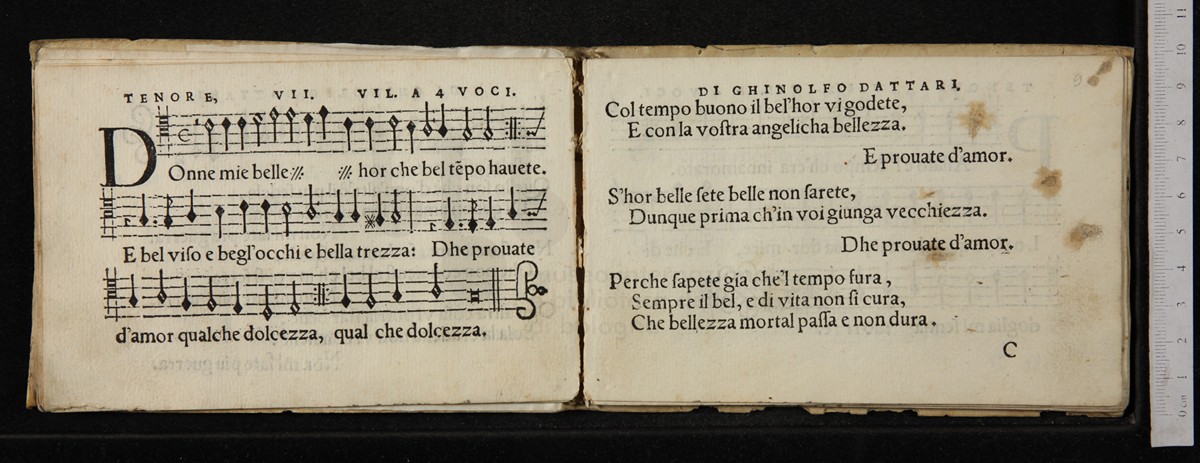 TENORE, VII. VIL. A 4 VOCI.
Donne mie belle :// :// hor che bel tẽpo hauete.
E bel viſo e begl'occhi e bella trezza: Dhe prouate
d'amor qualche dolcezza, qual che dolcezza.
DI GHINOLFO DATTARI, 9
Col tempo buono il bel'hor vi godete,
E con la voſtra angelicha bellezza.
E prouate d'amor.
S'hor belle ſete belle non ſarete,
Dunque prima ch'in voi giunga vecchiezza.
Dhe prouate d'amor.
Perche ſapete gia che'l tempo fura,
Sempre il bel, e di vita non ſi cura,
Che bellezza mortal paſſa e non dura.
C
0 cm 1 2 3 4 5 6 7 8 9 10 11